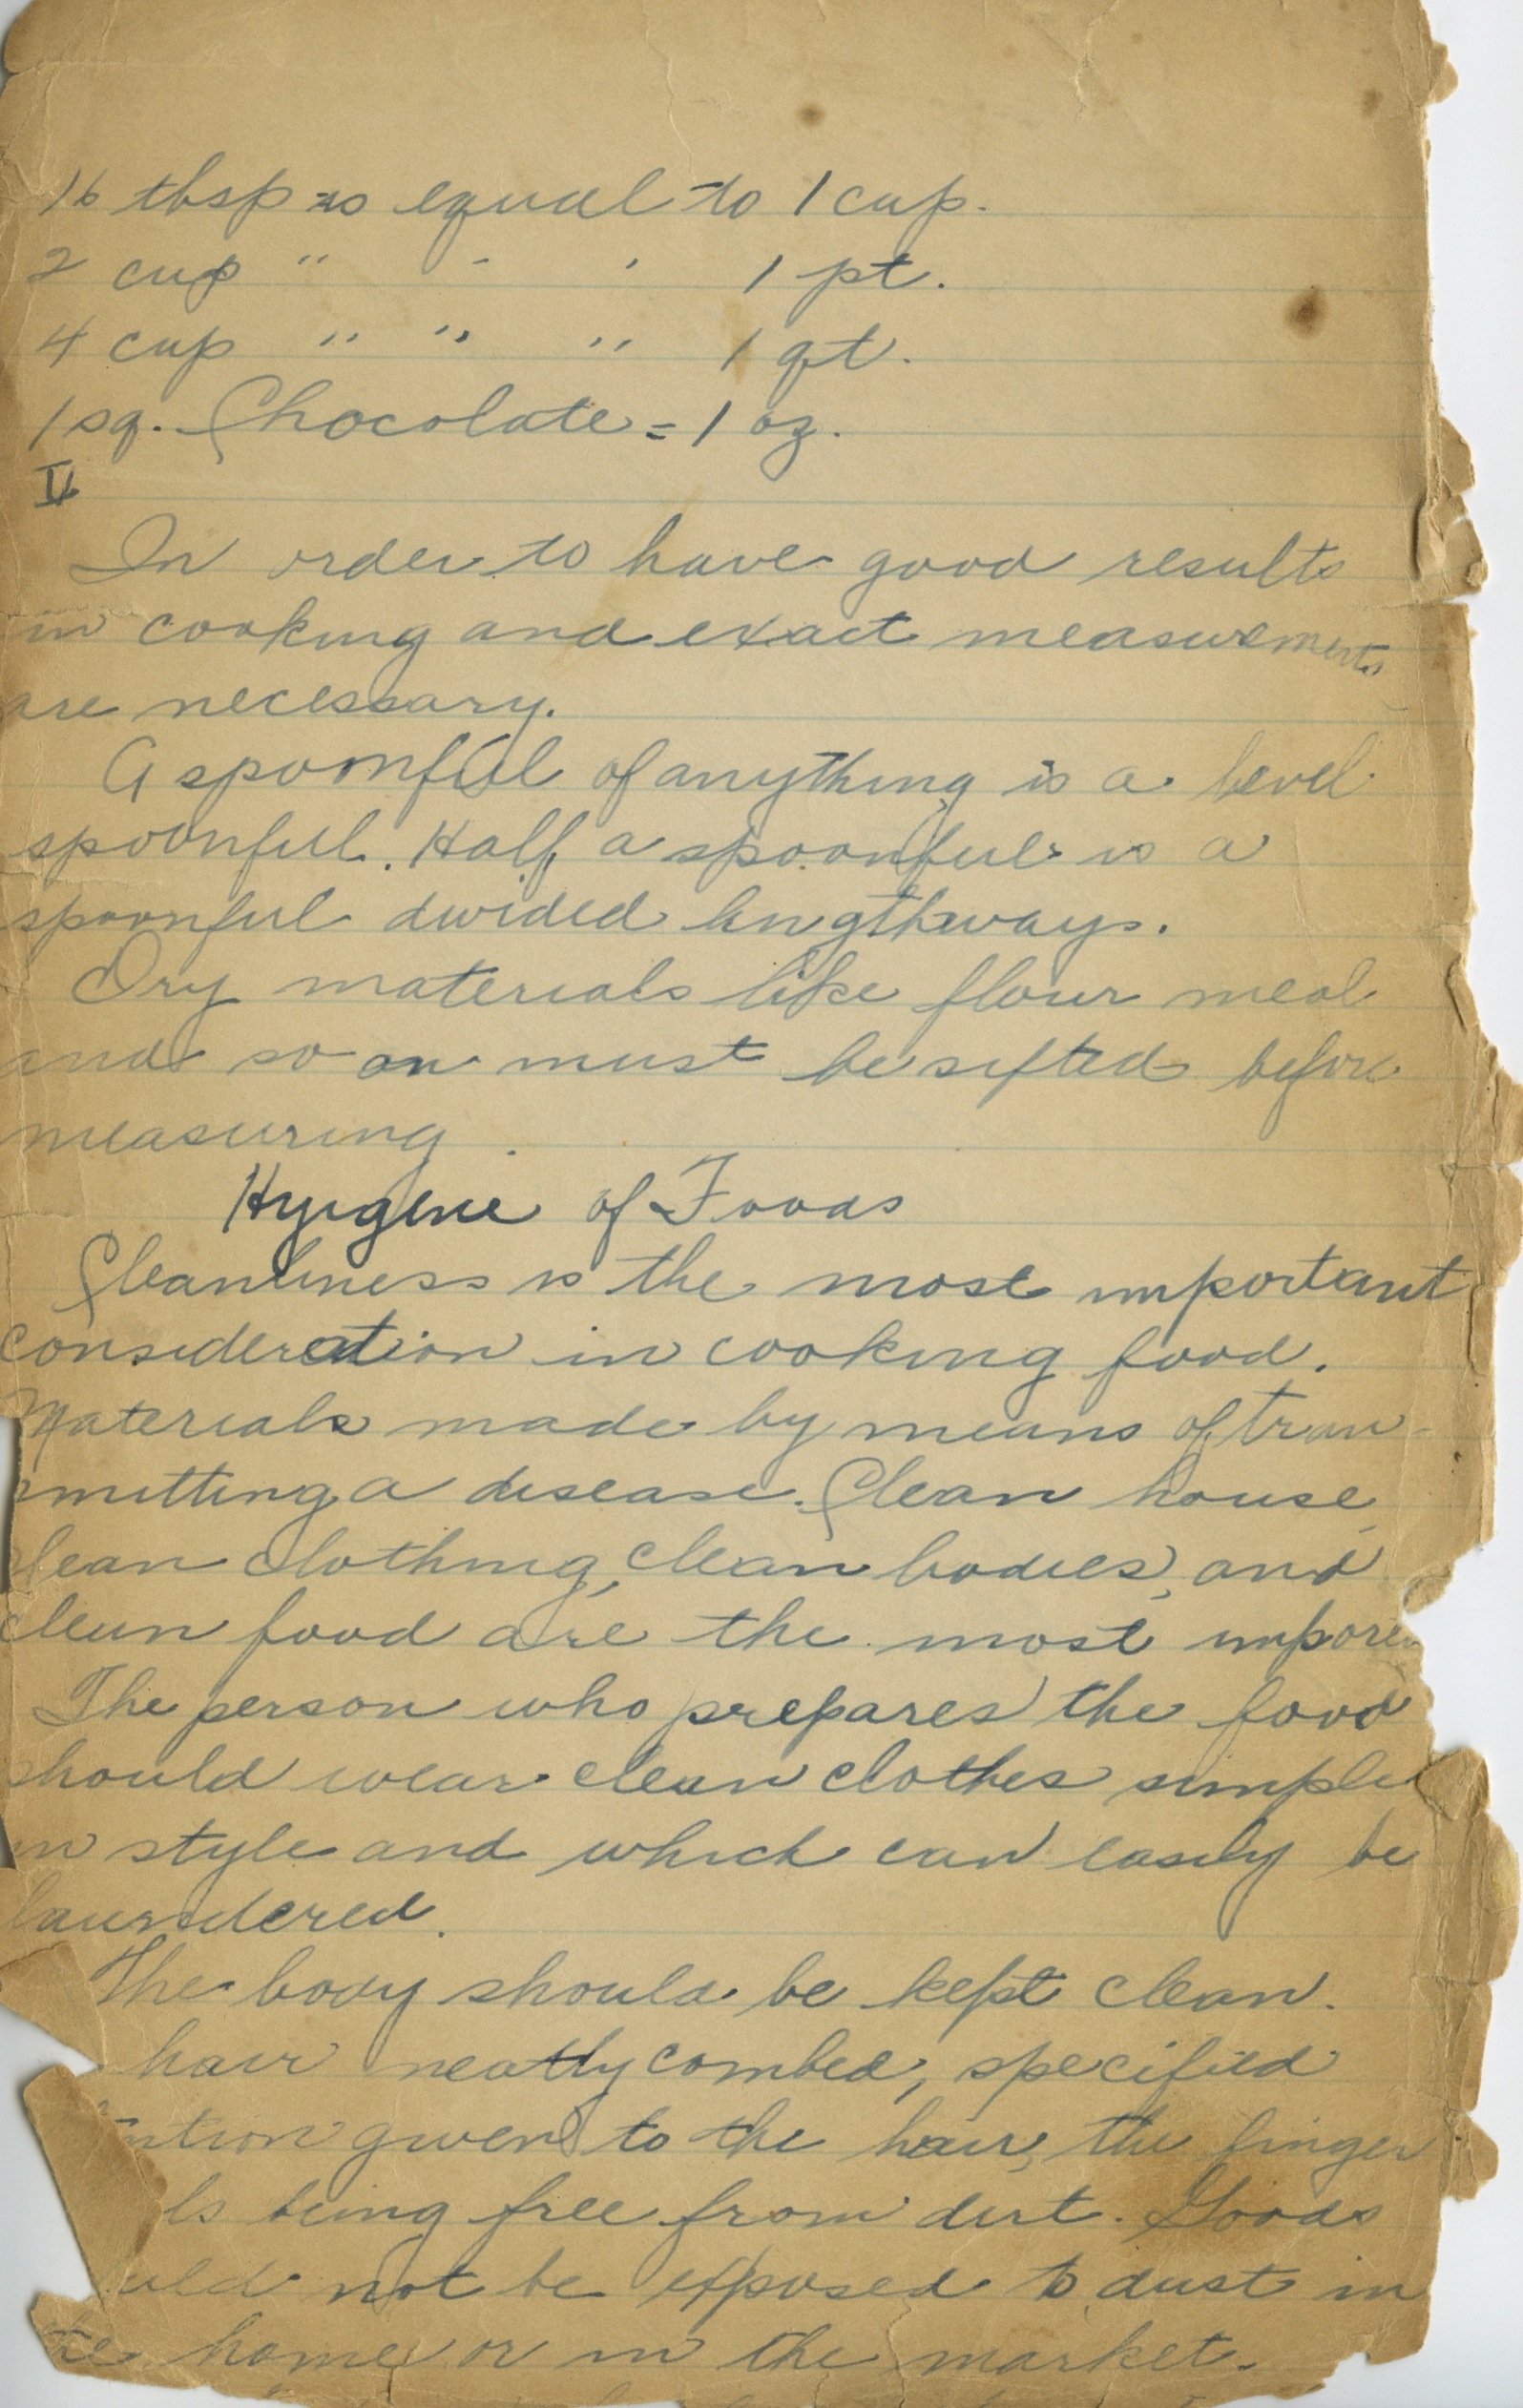 16 tbsp is equal to 1 cup.
2 cup " " " 1 pt.
4 cup " " " 1 qt.
1 sq. Chocolate = 1 oz.
II
In order to have good results
in cooking and exact measurements
are necessary.
A spoonful of anything is a level
spoonful. Half a spoonful is a
spoonful divided lengthways.
Dry materials like flour meal
and so on must be sifted before
measuring.
Hyigene of Foods
Cleanliness is the most important
consideration in cooking food.
Materials made by means of tran-
smitting a disease. Clean house,
clean clothing, clean bodies, and
clean food are the most
The person who prepares the food
should wear clean clothes simple
in style and which can easily be
laundered.
The body should be kept clean.
hair neatly combed, specified
ntion given to the hair, the finger
ls being free from dirt. Foods
uld not be exposed to dust in
the home or in the market.